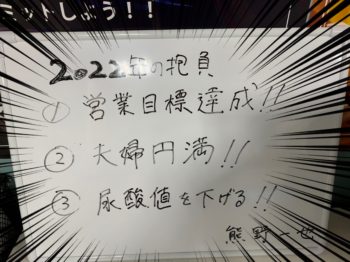 ミットしぶう！！
2022年の抱負
① 営業目標達成！！
② 夫婦円満！！
③ 尿酸値を下げる！！
熊野一也